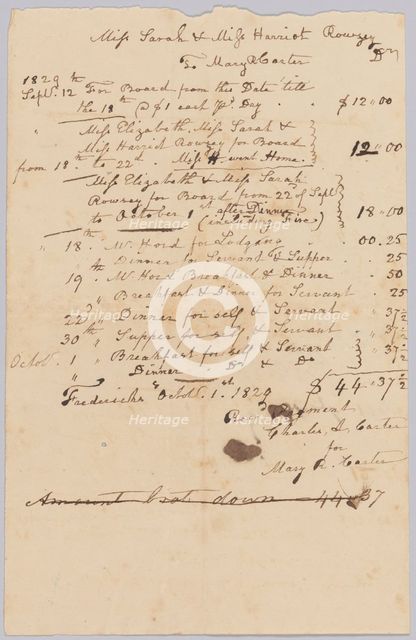 Miss Sarah & Miss Harriot Rowzey
To Mary R Carter Dr
1829
Septr. 12th For Board from this Date till
the 18th @ $1 each pr. Day . . $12"00
" Miss Elizabeth, Miss Sarah &
Miss Harriot Rowzey for Board
from 18th to 22d. Miss H. went Home. 12"00
Miss Elizabeth & Miss Sarah
Rowzey for Board from 22d of Septr
to October 1st after Dinner
(including Fire) 18"00
" 18th. W. Hord for Lodging . 00.25
" Dinner for Servant & Supper . 25
19th W. Hord Breakfast & Dinner . 50
" Breakfast & Dinner for Servant 25
22d " Dinner for self & Servant . " 37 1/2
30th Supper for self & Servant . " 37 1/2
Octobr. 1 " Breakfast for self & Servant
" Dinner Do & Do " 37 1/2
$44"37 1/2
Fredericksg Octobr. 1st. 1829
Recd Payment
Charles, L, Carter
for
Mary R. Carter
Amount brot down 44"37
Heritage
Heritage
Heritage
Heritage
Heritage
Heritage
Images